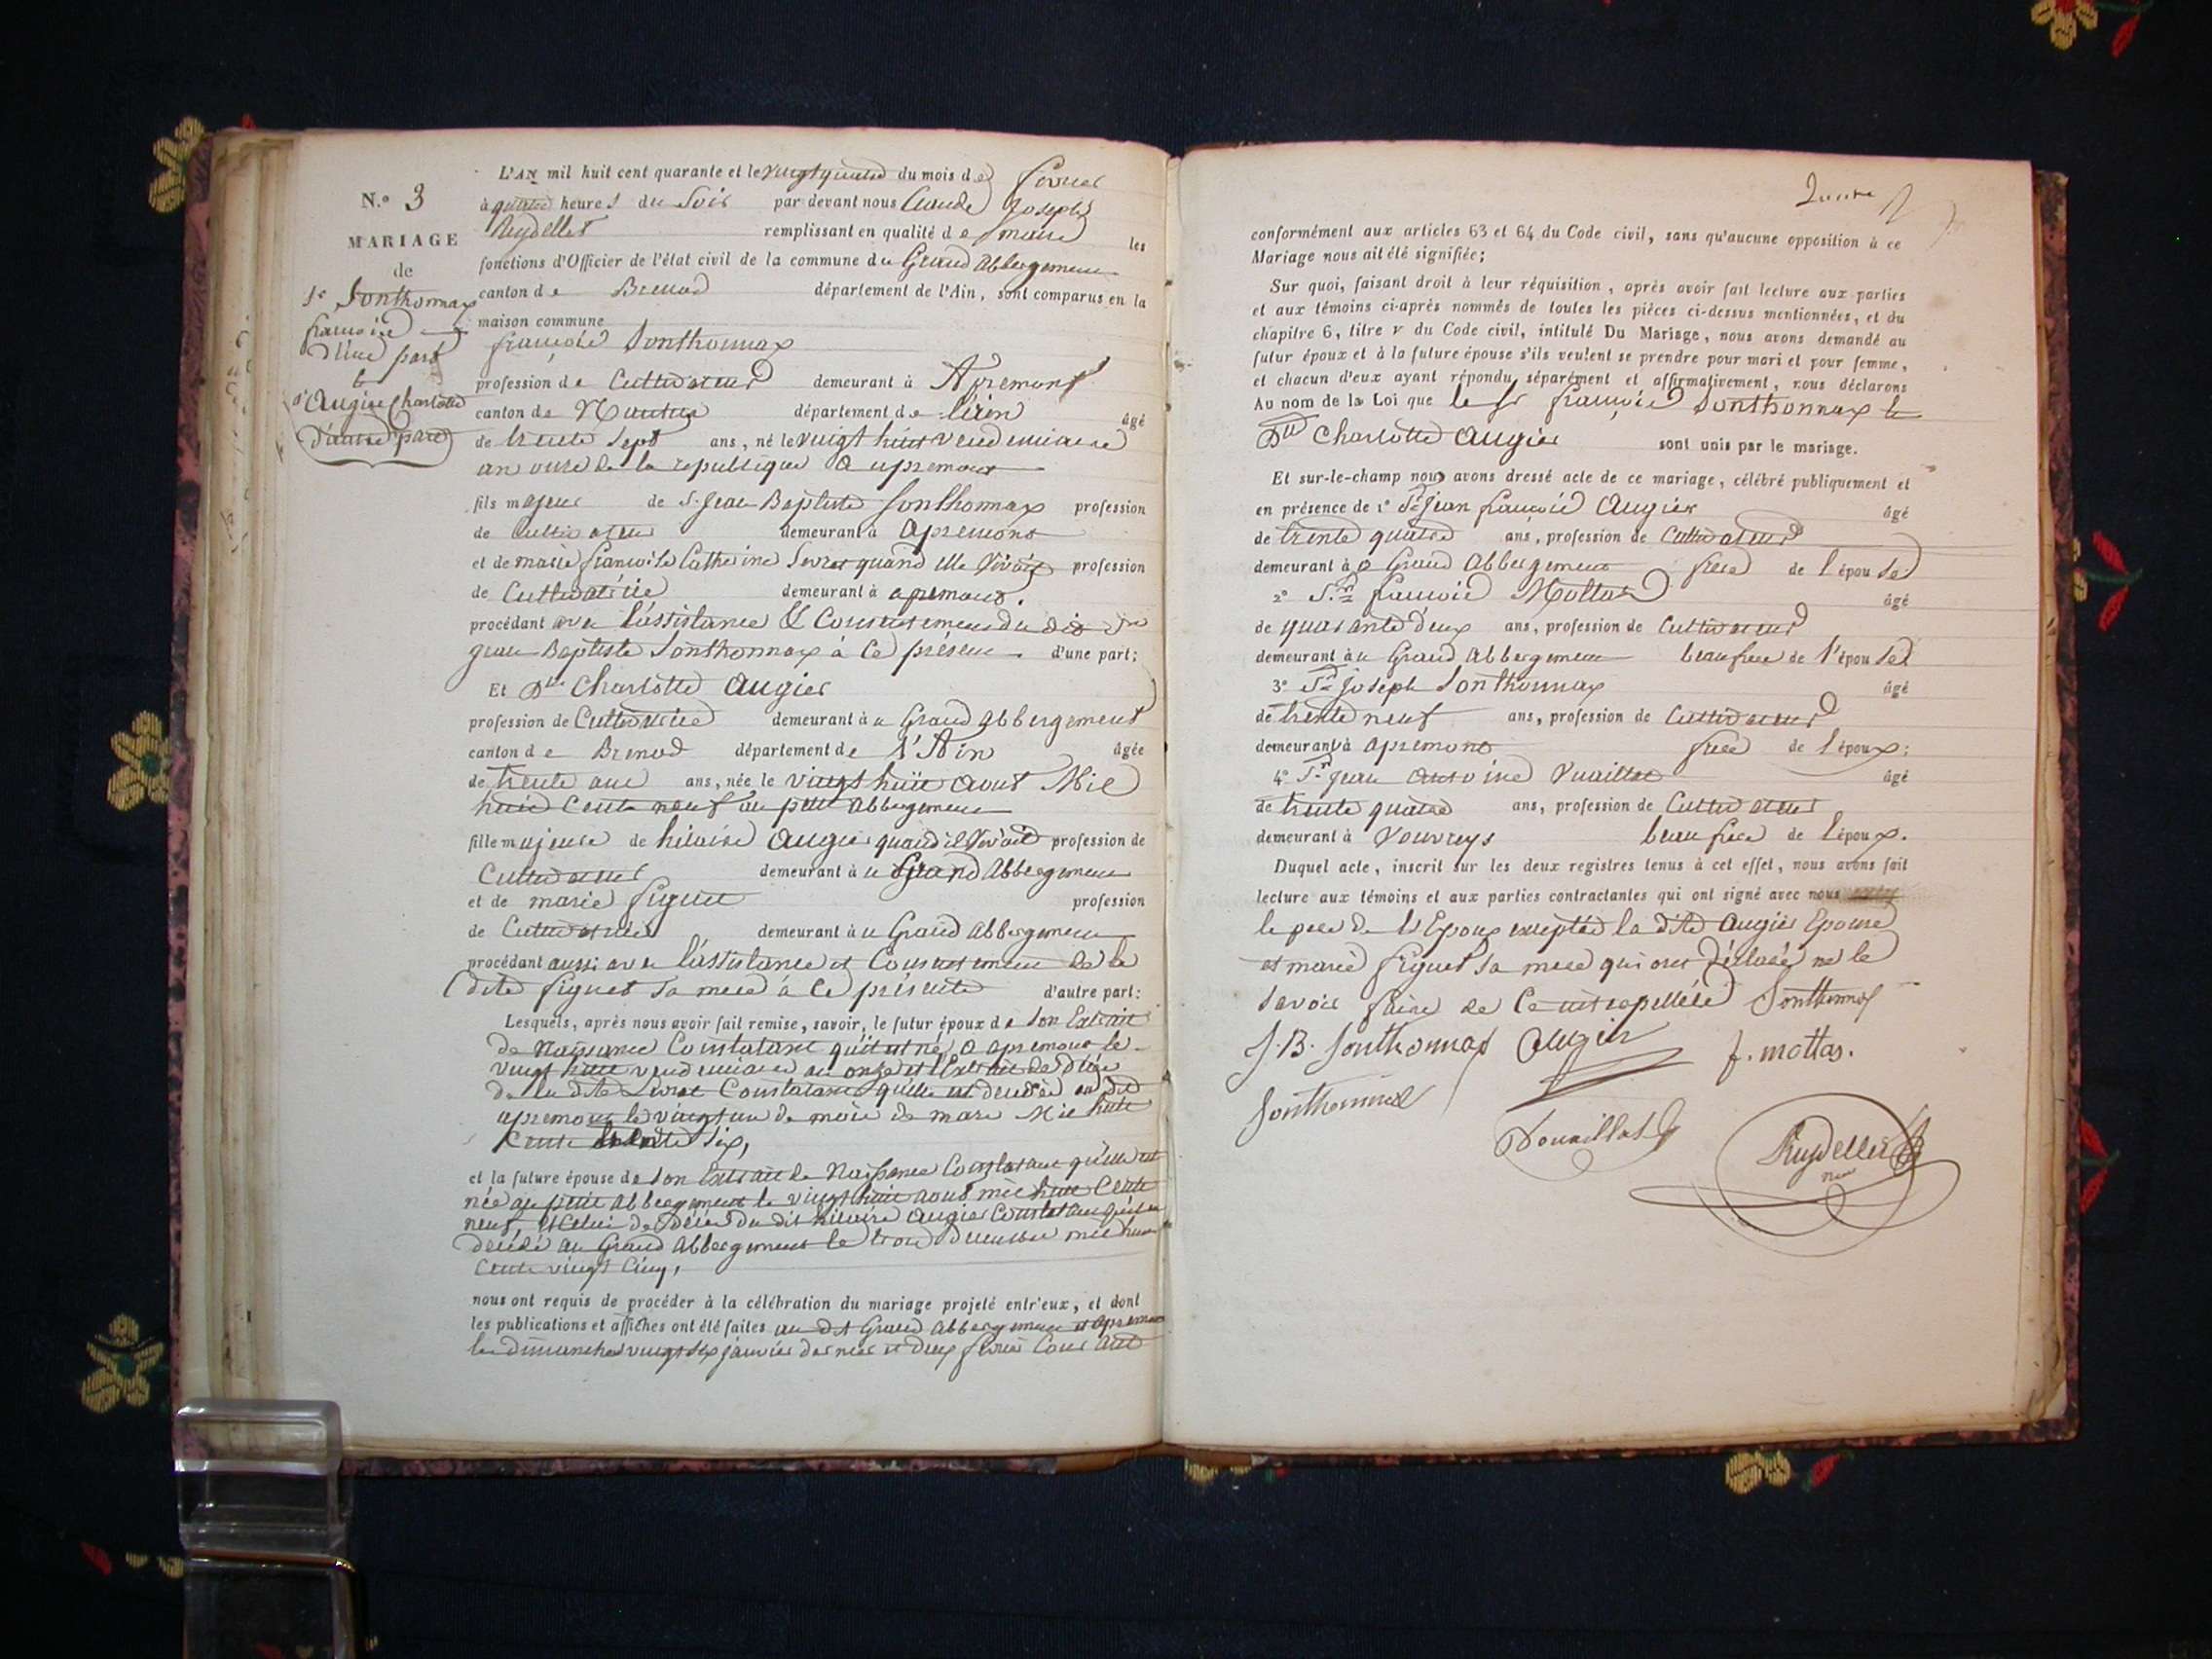 N.° 3
MARIAGE
de
Sr Sonthonnax
françois
d'une part
et
dlle Augier Charlotte
d'autre part
L'AN mil huit cent quarante et le vingt quatre du mois de fevrier
à quatre heures du Soir par devant nous Claude Joseph
Reydellet remplissant en qualité de maire les
fonctions d'Officier de l'état civil de la commune du Grand Abbergement
canton de Brenod département de l'Ain, sont comparus en la
maison commune
françois Sonthonnax
profession de Cultivateur demeurant à Apremont
canton de Nantua département de l'ain âgé
de trente sept ans, né le vingt huit vendemiaire
an onze de la republique a apremont
fils majeur de Sr Jean Baptiste Sonthonnax profession
de Cultivateur demeurant à apremont
et de marie françoise Catherine quand elle vivait profession
de Cultivatrice demeurant à apremont.
procédant avec l'assistance et Consentement du dit Sr
jean Baptiste Sonthonnax à Ce présent d'une part;
Et Dlle Charlotte Augier
profession de Cultivatrice demeurant à u Grand abbergement
canton de Brenod département de l'Ain âgée
de trente ans, née le vingt huit aout Mil
huit Cents neuf au petit abbergement
fille majeure de hilaire Augier quand il vivait profession de
Cultivateur demeurant à u Grand Abbergement
et de marie figuet profession
de Cultivatrice demeurant à u Grand abbergement
procédant aussi avec l'assistance et Consentement de la
dite figuet sa mere à Ce présente d'autre part:
Lesquels, après nous avoir fait remise, savoir, le futur époux de Son Extrait
de Naissance Constatant qu'il est né a apremont le
vingt huit vendemiaire an onze et l'extrait de décès
de la dite Constatant qu'elle est decedée au dit
apremont le vingt un de mois de mars Mil huit
Cents trente Six,
et la future épouse de Son Extrait de Naissance Constatant qu'elle est
née au petit abbergement le vingt huit aout mil huit Cents
neuf, et Celui de décès du dit hilaire Augier Constatant qu'il est
decédé au Grand Abbergement le trois decembre mil huit
Cents vingt Cinq,
nous ont requis de procéder à la célébration du mariage projeté entr'eux, et dont
les publications et affiches ont été faites au dit Grand Abbergement et apremont
les dimanches vingt six janvier dernier et deux fevrier Courant
conformément aux articles 63 et 64 du Code civil, sans qu'aucune opposition à ce
Mariage nous ait été signifiée;
Sur quoi, faisant droit à leur réquisition, après avoir fait lecture aux parties
et aux témoins ci-après nommés de toutes les pièces ci-dessus mentionnées, et du
chapitre 6, titre v du Code civil, intitulé Du Mariage, nous avons demandé au
futur époux et à la future épouse s'ils veulent se prendre pour mari et pour femme,
et chacun d'eux ayant répondu séparément et affirmativement, nous déclarons
Au nom de la Loi que le Sr françois Sonthonnax et
Dlle Charlotte Augier sont unis par le mariage.
Et sur-le-champ nous avons dressé acte de ce mariage, célébré publiquement et
en présence de 1° Sr Jean françois Augier âgé
de trente quatre ans, profession de Cultivateur
demeurant à u Grand Abbergement frere de l'épouse
2° Sr françois Mottas âgé
de quarante deux ans, profession de Cultivateur
demeurant à u Grand Abbergement beau frere de l'épouse
3° Sr Joseph Sonthonnax âgé
de trente neuf ans, profession de Cultivateur
demeurant à apremont frere de l'époux;
4° Sr Jean Antoine âgé
de trente quatre ans, profession de Cultivateur
demeurant à Vouvreys beau frere de l'époux.
Duquel acte, inscrit sur les deux registres tenus à cet effet, nous avons fait
lecture aux témoins et aux parties contractantes qui ont signé avec nous
le pere de l'Epoux excepté la dite Augier Epouse
et marie figuet sa mere qui ont déclaré ne le
savoir faire de Ce Sonthonnax
J. B. Sonthonnax Augier f. mottas.
Sonthonnax
Reydellet